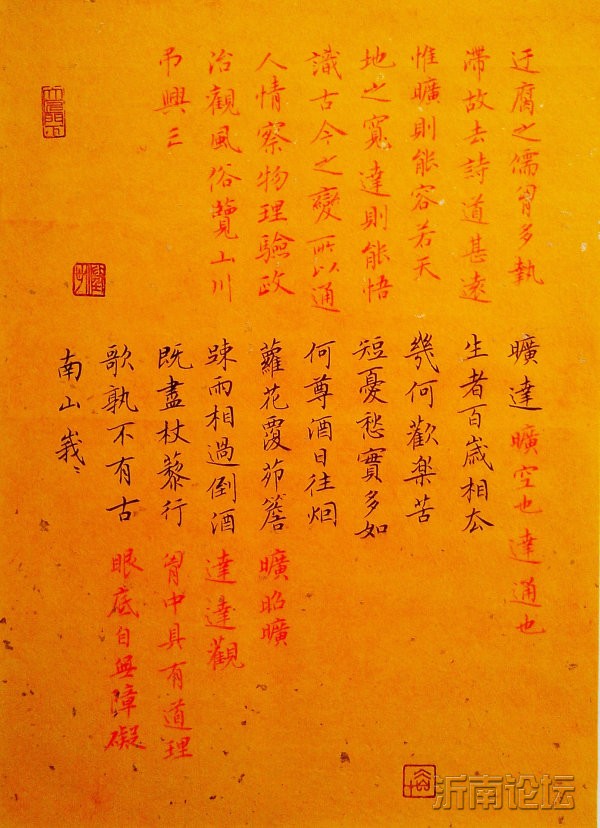 迂腐之儒胷多執
滯故去詩道甚遠
惟曠則能容若天
地之寬達則能悟
識古今之變所以通
人情察物理驗政
治觀風俗覽山川
吊興亡
曠達曠空也達通也
生者百歲相厺
幾何歡楽苦
短憂愁實多如
何尊酒日往烟
蘿花覆茆簷曠昭曠
踈雨相過倒酒達達觀
既盡杖藜行胷中具有道理
歌孰不有古眼底自無障礙
南山峩〻
沂南论坛